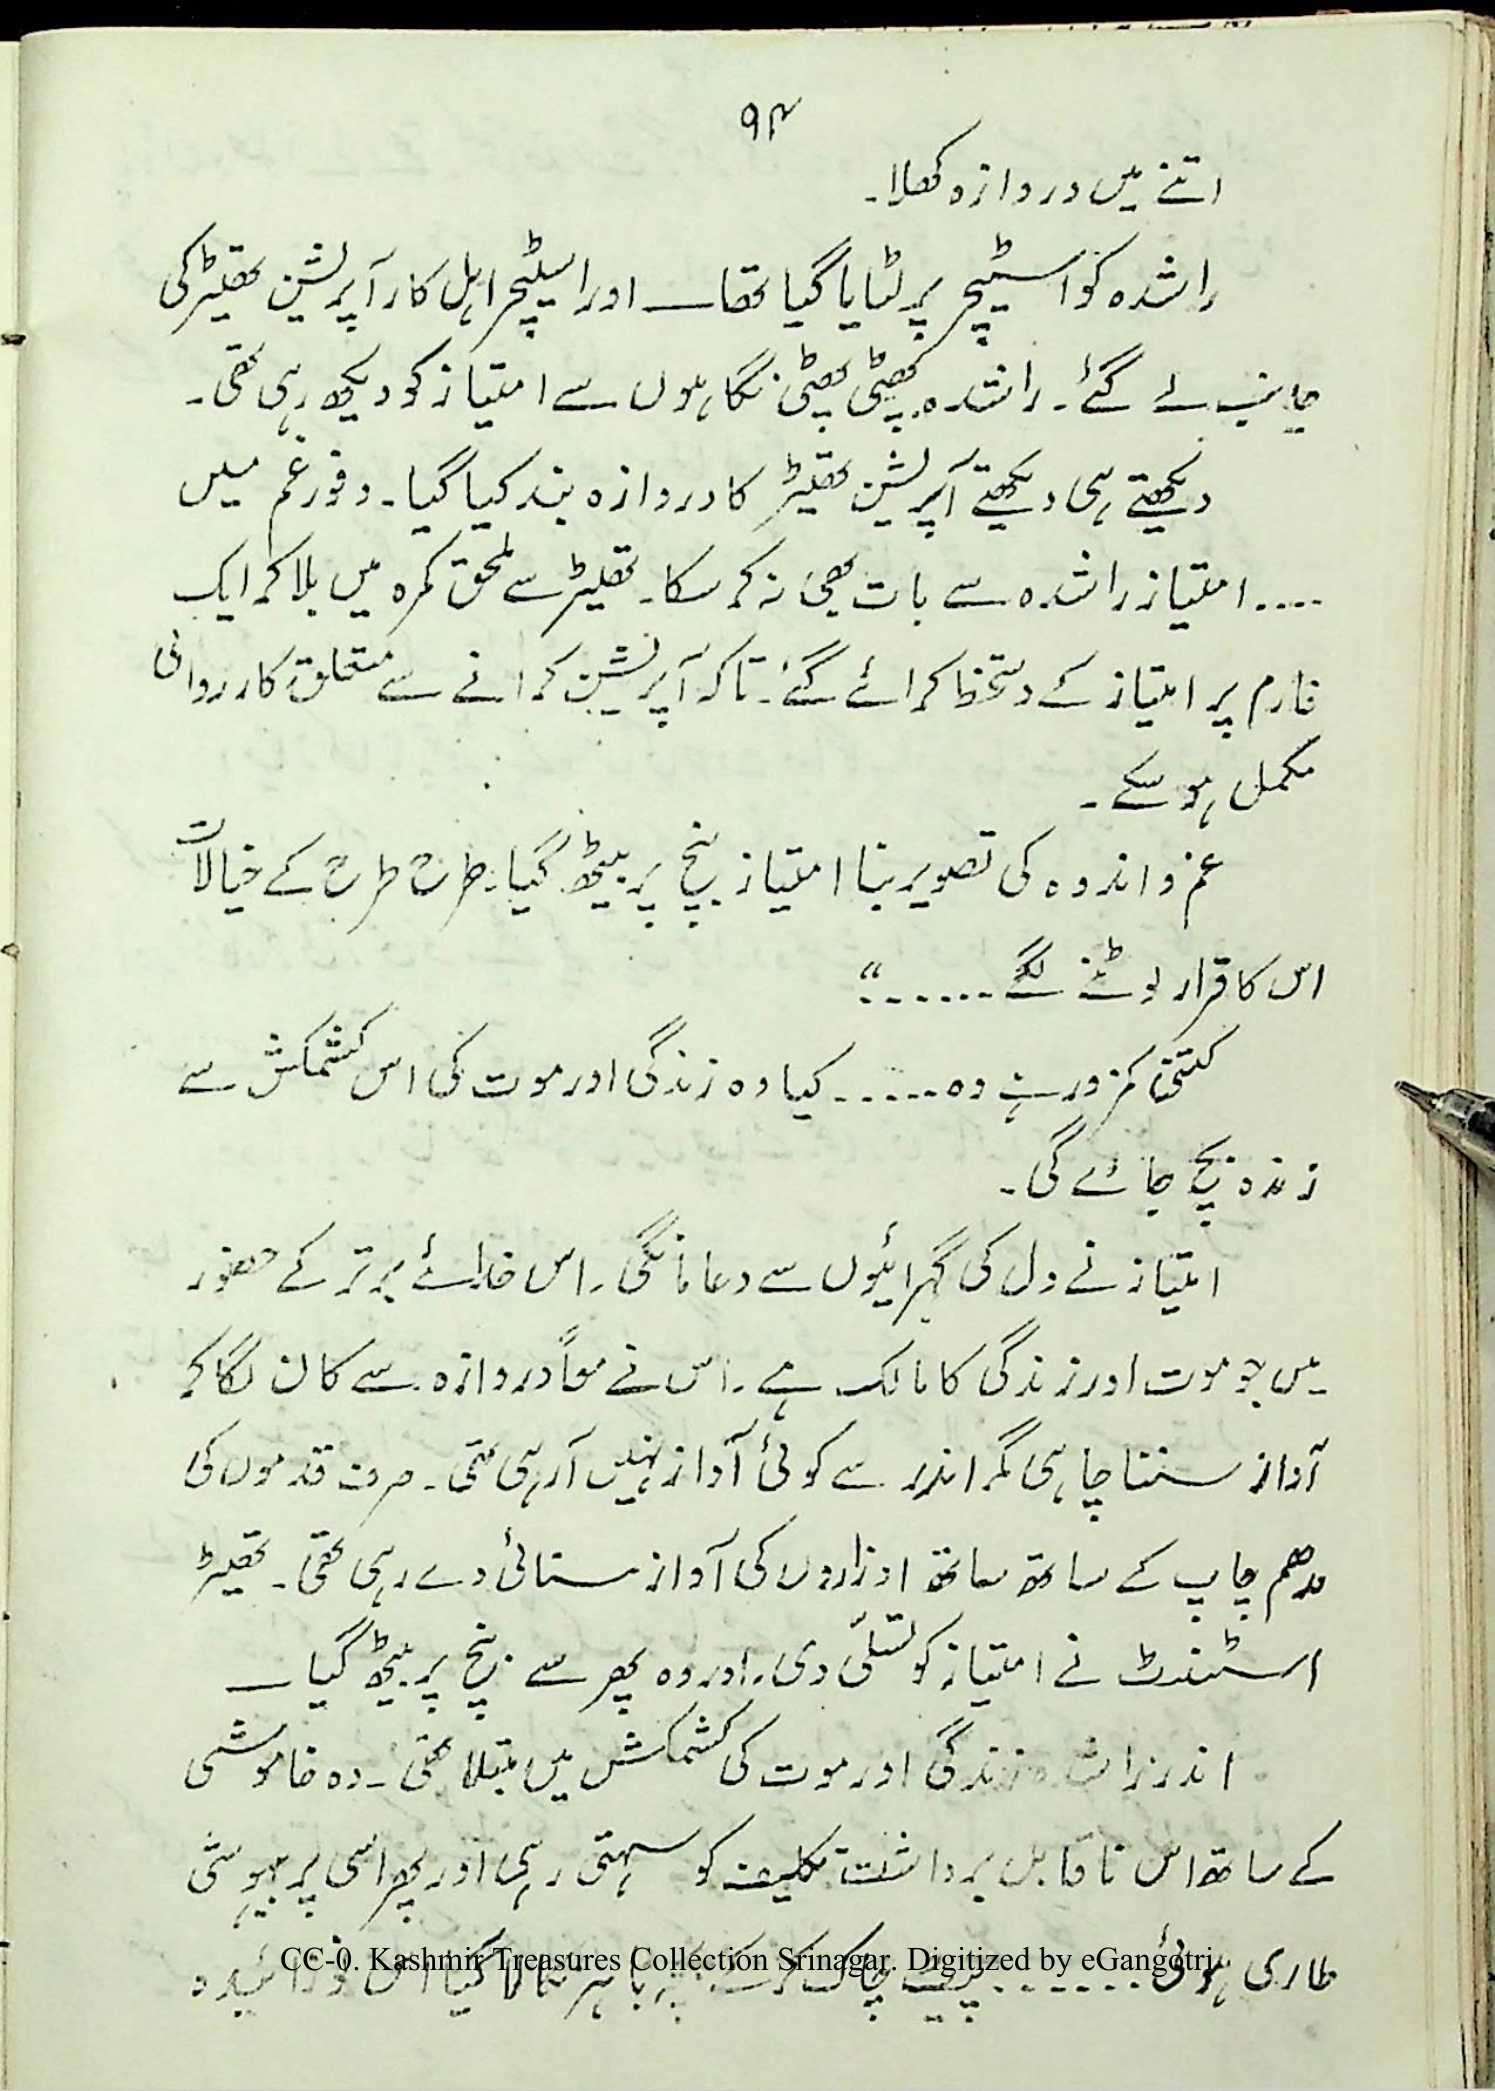 ۹۴
اتنے میں دروازہ کھلا۔
راشدہ کو اسٹیچر پر لٹایا گیا تھا ـــ اور اسٹیچر اہل کار آپریشن تھیٹر کی
جانب لے گئے۔ راشدہ پھٹی پھٹی نگاہوں سے امتیاز کو دیکھ رہی تھی۔
دیکھتے ہی دیکھتے آپریشن تھیٹر کا دروازہ بند کیا گیا۔ وفورِ غم میں
.... امتیاز راشدہ سے بات بھی نہ کر سکا۔ تھیٹر سے ملحق کمرہ میں بلا کر ایک
فارم پر امتیاز کے دستخط کرائے گئے۔ تاکہ آپریشن کرانے سے متعلق کارروائی
مکمل ہو سکے۔
غم و اندوہ کی تصویر بنا امتیاز بنچ پر بیٹھ گیا۔ طرح طرح کے خیالات
اس کا قرار لوٹنے لگے ......“
کتنی کمزور ہے وہ ...... کیا وہ زندگی اور موت کی اس کشمکش سے
زندہ بچ جائے گی۔
امتیاز نے دل کی گہرائیوں سے دعا مانگی۔ اس خدائے برتر کے حضور
میں جو موت اور زندگی کا مالک ہے۔ اس نے معاً دروازہ سے کان لگا کر
آواز سننا چاہی مگر اندر سے کوئی آواز نہیں آرہی تھی۔ صرف قدموں کی
مدھم چاپ کے ساتھ ساتھ اوزاروں کی آواز سنائی دے رہی تھی۔ تھیٹر
اسٹنڈنٹ نے امتیاز کو تسلّی دی۔ اور وہ پھر سے بنچ پر بیٹھ گیا ـــ
اندر راشدہ زندگی اور موت کی کشمکش میں مبتلا تھی۔ وہ خاموشی
کے ساتھ اس ناقابل برداشت تکلیف کو سہتی رہی اور پھر اسی پر بیہوشی
طاری ہوئی ...... پیٹ چاک کرکے بچہ باہر نکالا گیا اس نوزائیدہ
CC-0. Kashmir Treasures Collection Srinagar. Digitized by eGangotri